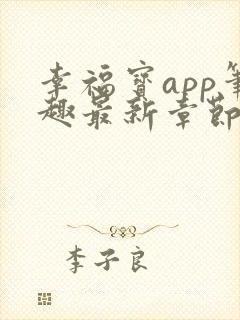 幸福宝app笔
趣最新章节
李子良